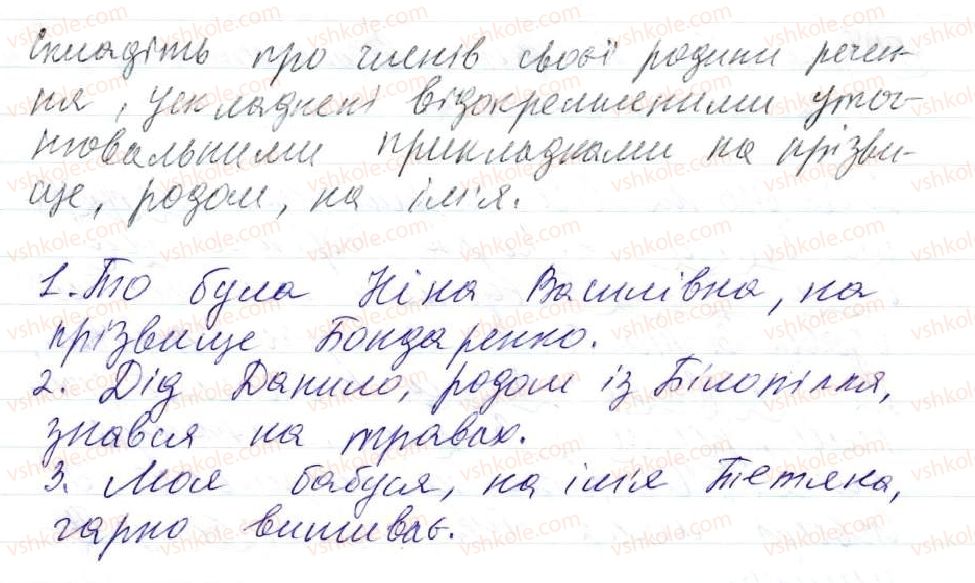 Складіть про членів своєї родини речен-
ня, ускладнені відокремленими уточ-
нювальними прикладками на прізви-
ще, родом, на ім'я.
1. То була Ніна Василівна, на
прізвище Бондаренко.
2. Дід Данило, родом із Білопілля,
знався на травах.
3. Моя бабуся, на ім'я Тетяна,
гарно вишиває.